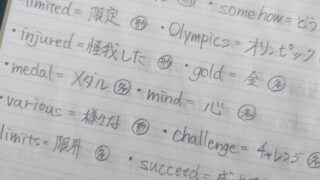 limited = 限定 形
・somehow = どう
・injured = 怪我した 形
・Olympics = オリンピック
・medal = メダル 名
・gold = 金 名
・various = 様々な 形
・mind = 心 名
limits = 限界 名
・challenge = チャレンジ 名
・succeed =